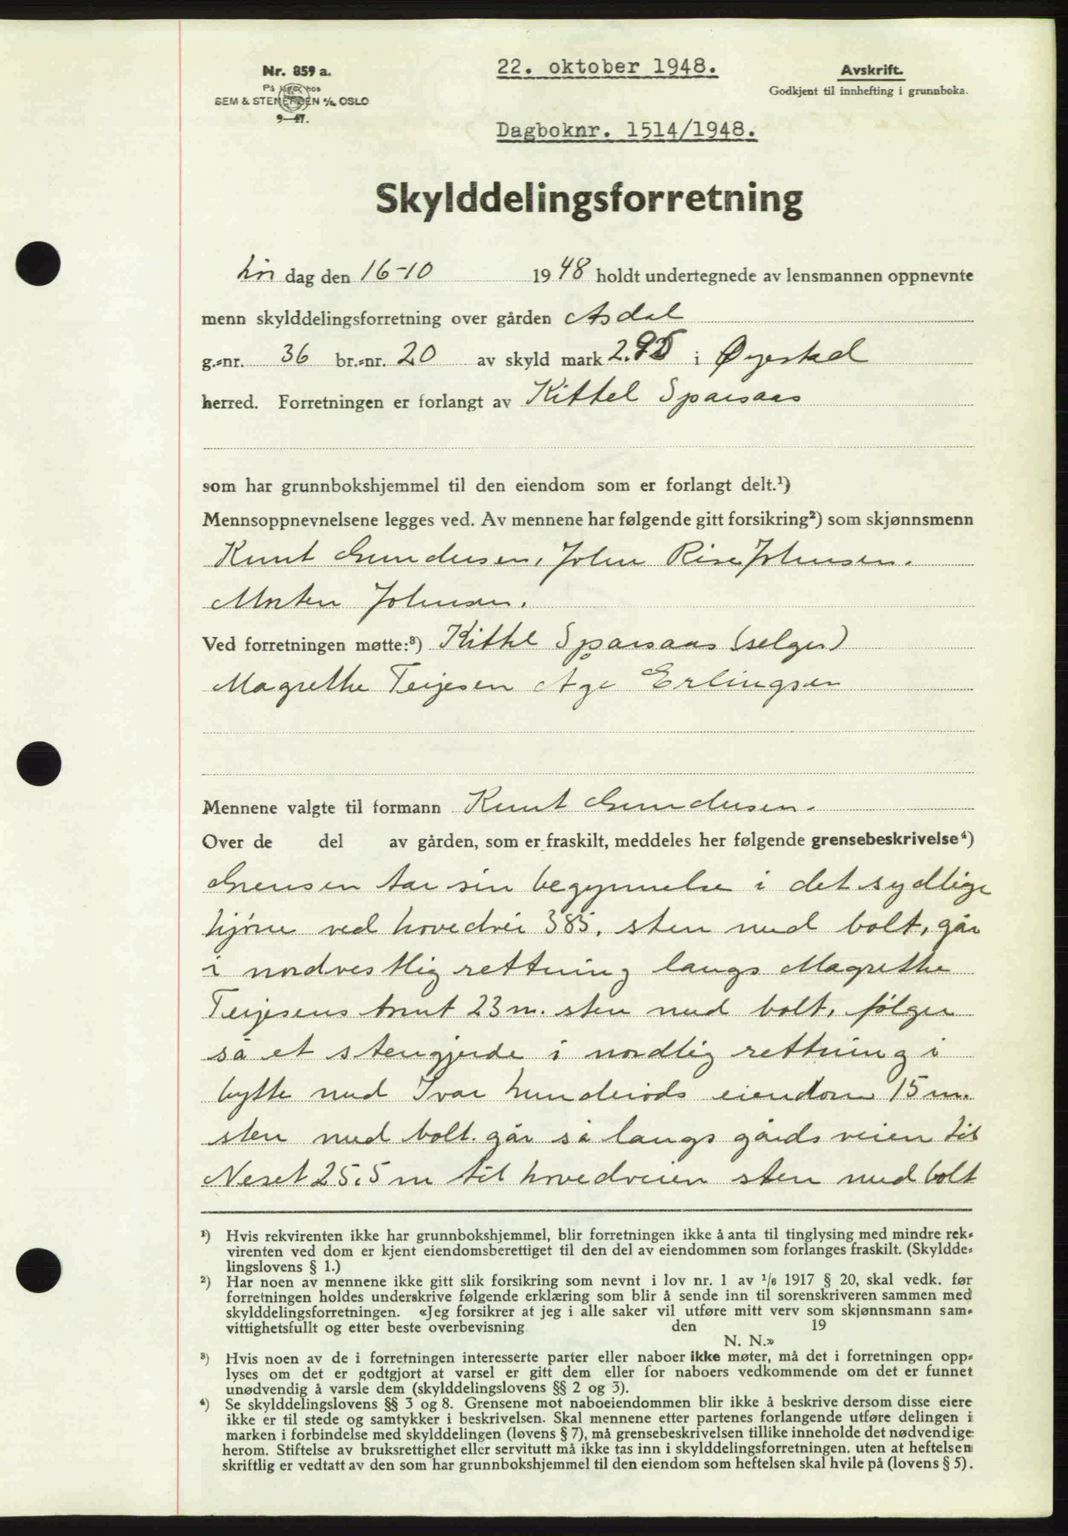 Nr. 859 a.
På lager hos
SEM & STENERSEN A/S, OSLO
9—47.
22. oktober 1948.
Avskrift.
Godkjent til innhefting i grunnboka.
Dagboknr. 1514/1948.
Skylddelingsforretning
Lør dag den 16-10 1948 holdt undertegnede av lensmannen oppnevnte
menn skylddelingsforretning over gården Asdal
g.-nr. 36 br.-nr. 20 av skyld mark 2.95 i Øyestad
herred. Forretningen er forlangt av Kittel Sparsaas
som har grunnbokshjemmel til den eiendom som er forlangt delt.¹)
Mennsoppnevnelsene legges ved. Av mennene har følgende gitt forsikring²) som skjønnsmenn
Knut Gundersen, John Rise Johnsen.
Morten Johnsen.
Ved forretningen møtte:³) Kittel Sparsaas (selger)
Magrethe Terjesen Åge Erlingsen
Mennene valgte til formann Knut Gundersen.
Over de del av gården, som er fraskilt, meddeles her følgende grensebeskrivelse⁴)
Grensen tar sin begynnelse i det sydlige
hjørne ved hovedvei 385, sten med bolt, går
i nordvestlig rettning langs Magrethe
Terjesens tomt 23 m. sten med bolt, følger
så et stengjerde i nordlig rettning i
bytte med Ivar eiendom 15 m.
sten med bolt. går så langs gårdsveien til
Neset 25,5 m til hovedveien sten med bolt
¹) Hvis rekvirenten ikke har grunnbokshjemmel, blir forretningen ikke å anta til tinglysing med mindre rek-
virenten ved dom er kjent eiendomsberettiget til den del av eiendommen som forlanges fraskilt. (Skyldde-
lingslovens § 1.)
²) Har noen av mennene ikke gitt slik forsikring som nevnt i lov nr. 1 av 1/6 1917 § 20, skal vedk. før
forretningen holdes underskrive følgende erklæring som blir å sende inn til sorenskriveren sammen med
skylddelingsforretningen. «Jeg forsikrer at jeg i alle saker vil utføre mitt verv som skjønnsmann sam-
vittighetsfullt og etter beste overbevisning den 19
N. N.»
³) Hvis noen av de i forretningen interesserte parter eller naboer ikke møter, må det i forretningen opp-
lyses om det er godtgjort at varsel er gitt dem eller for naboers vedkommende om det er funnet
unødvendig å varsle dem (skylddelingslovens §§ 2 og 3).
⁴) Se skylddelingslovens §§ 3 og 8. Grensene mot naboeiendommen blir ikke å beskrive dersom disse eiere
ikke er til stede og samtykker i beskrivelsen. Skal mennene etter partenes forlangende utføre delingen i
marken i forbindelse med skylddelingen (lovens § 7), må grensebeskrivelsen tillike inneholde det nødvendige
herom. Stiftelse av bruksrettighet eller servitutt må ikke tas inn i skylddelingsforretningen, uten at heftelsen
skriftlig er vedtatt av den som har grunnbokshjemmel til den eiendom som heftelsen skal hvile på (lovens § 5).